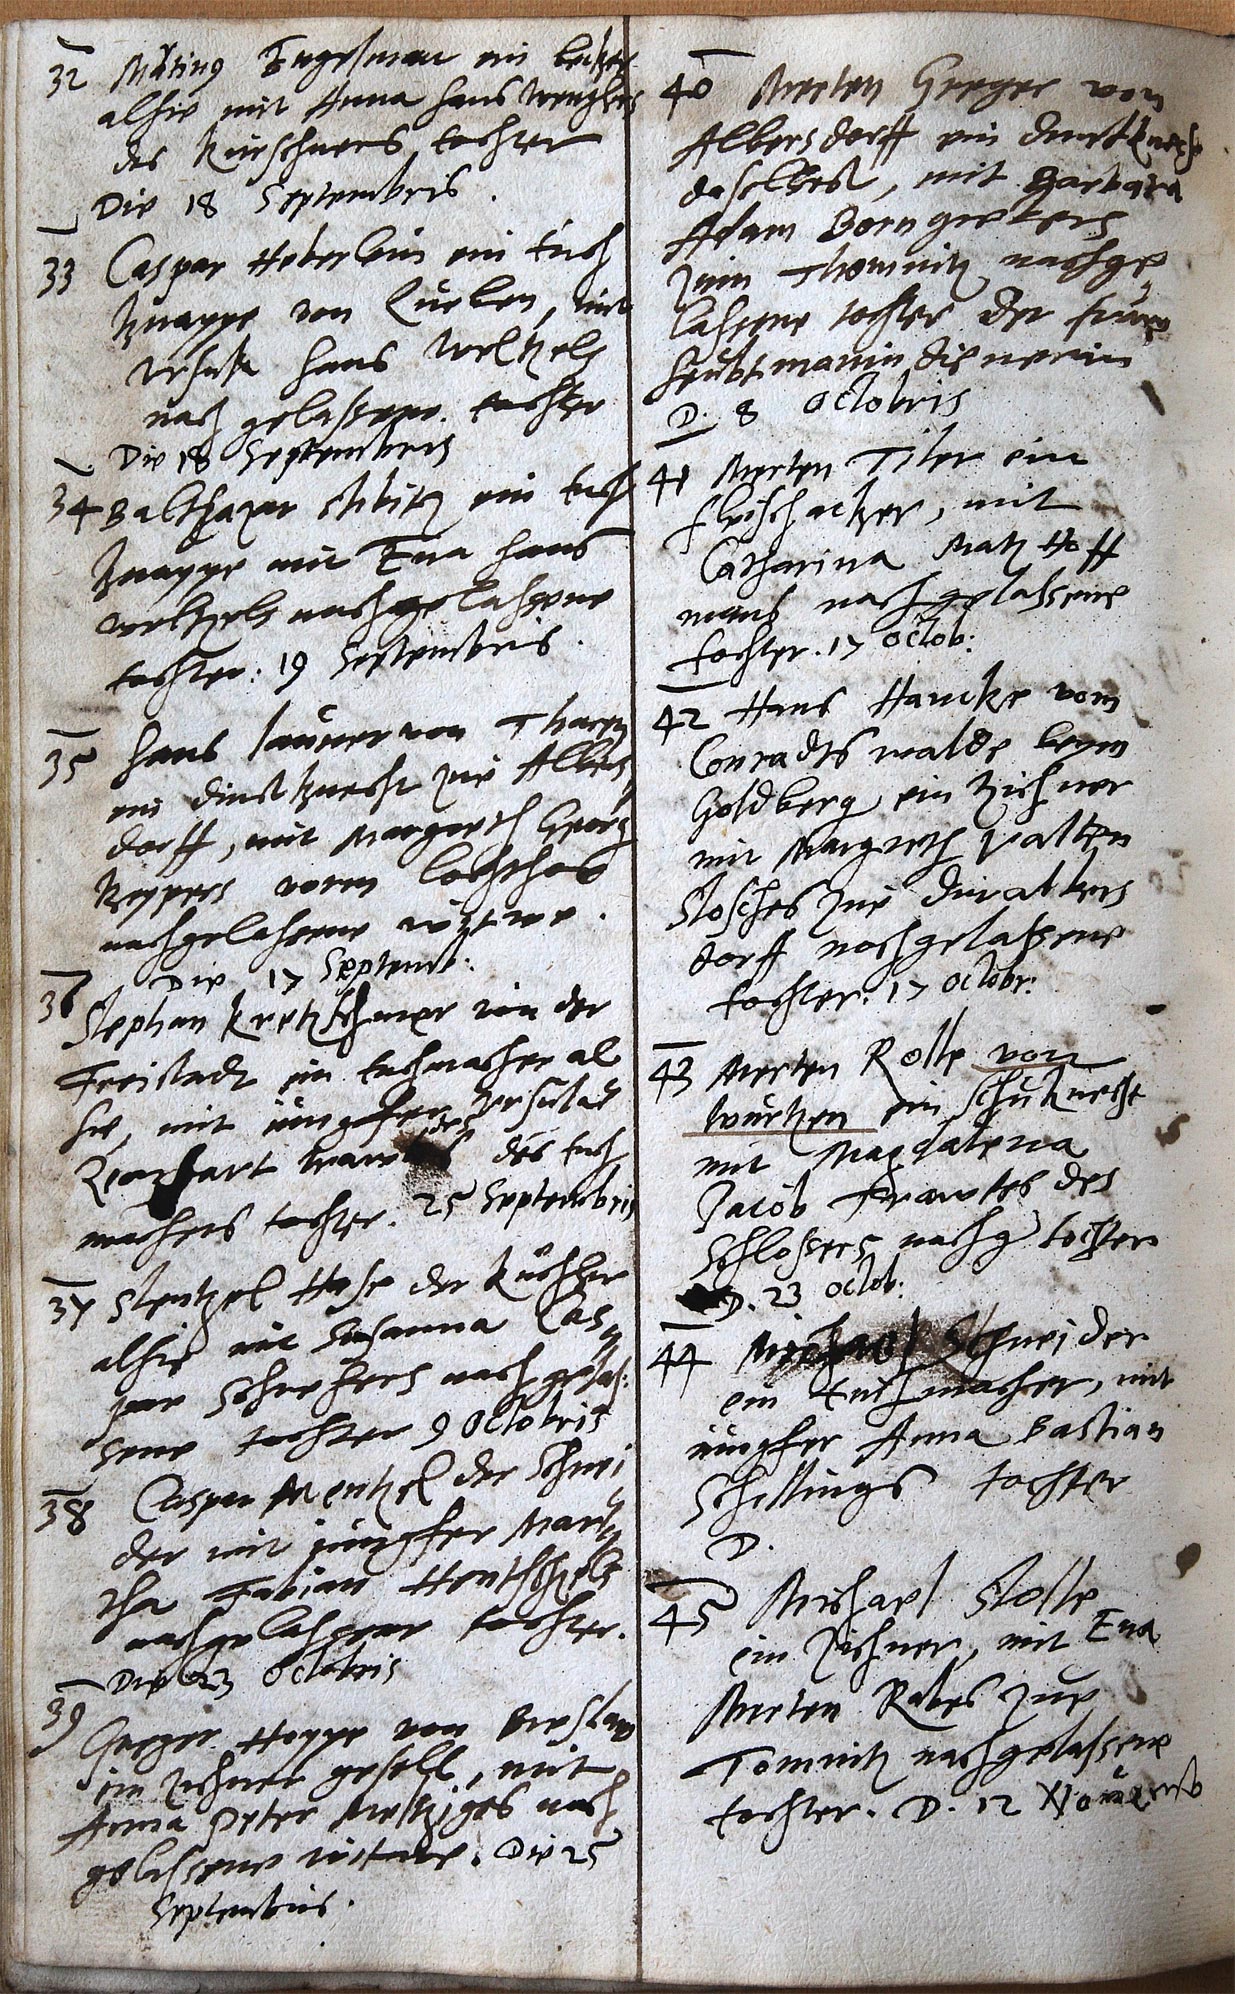 32 Matheus Engelman ein becker
alhie mit Anna Hans
des Kürschners tochter
Die 18 Septembris.
33 Caspar Heberlein ein tuch
knappe von Lüeben, mit
Ursula Hans Weltzels
nach gelassene tochter
Die 18 Septembris
34 Balthazar ein tuch
knappe mit Eva Hans
Weltzels nachgelassene
tochter. 19 Septembris.
35 Hans von
ein dinstknecht zue Albers
dorff, mit Margareth
vorm
nachgelassene witwe.
Die 17 Septemb:
36
Stephan Kretzschmer von der
Freistadt ein tuchmacher al
hie, mit iungefer Ursula
des tuch
machers tochter. 25 Septembris
37 Stentzel Hase der Küchler
alhie mit Susanna Cas
par nach gelas:
sene tochter 9 Octobris
38 Caspar Mentzel der Schnei
der mit iungfer Mar
tha Fabian Hentschels
nachgelassene tochter.
Die 23 Octobris
39
Gregor Hoppe von Breslaw
ein zichner gesell, mit
Anna Peter nach
gelassene witwe. Die 25
Septembris.
40 Merten Gregor von
Albersdorff ein dinstknecht
daselbest, mit Barbara
Adam Borngrebers
zum Thomnitz nachge
lassene tochter der fraw
heubtmannin dienerin
D. 8 Octobris
41 Merten Tiler ein
fleischacker, mit
Catharina Matz Hoff
mans nachgelassene
tochter. 17 Octob:
42 Hans Hancke vom
Conradtswalde beym
Goldberg ein zichner
mit Margreth Valten
Stosches zue
dorff nachgelassene
tochter. 17 Octobr:
43 Merten Rolle von
Wurtzen ein schuknecht
mit Magdalena
Jacob des
Schlossers nachg tochter
D. 23 Octob:
44 Michael Schneider
ein tuchmacher, mit
iungfer Anna Bastian
Schillings tochter
D.
45 Michael Stolle
ein zichner, mit Eva
Merten Rabes zue
Tomnitz nachgelassene
tochter. D. 12 Novemb